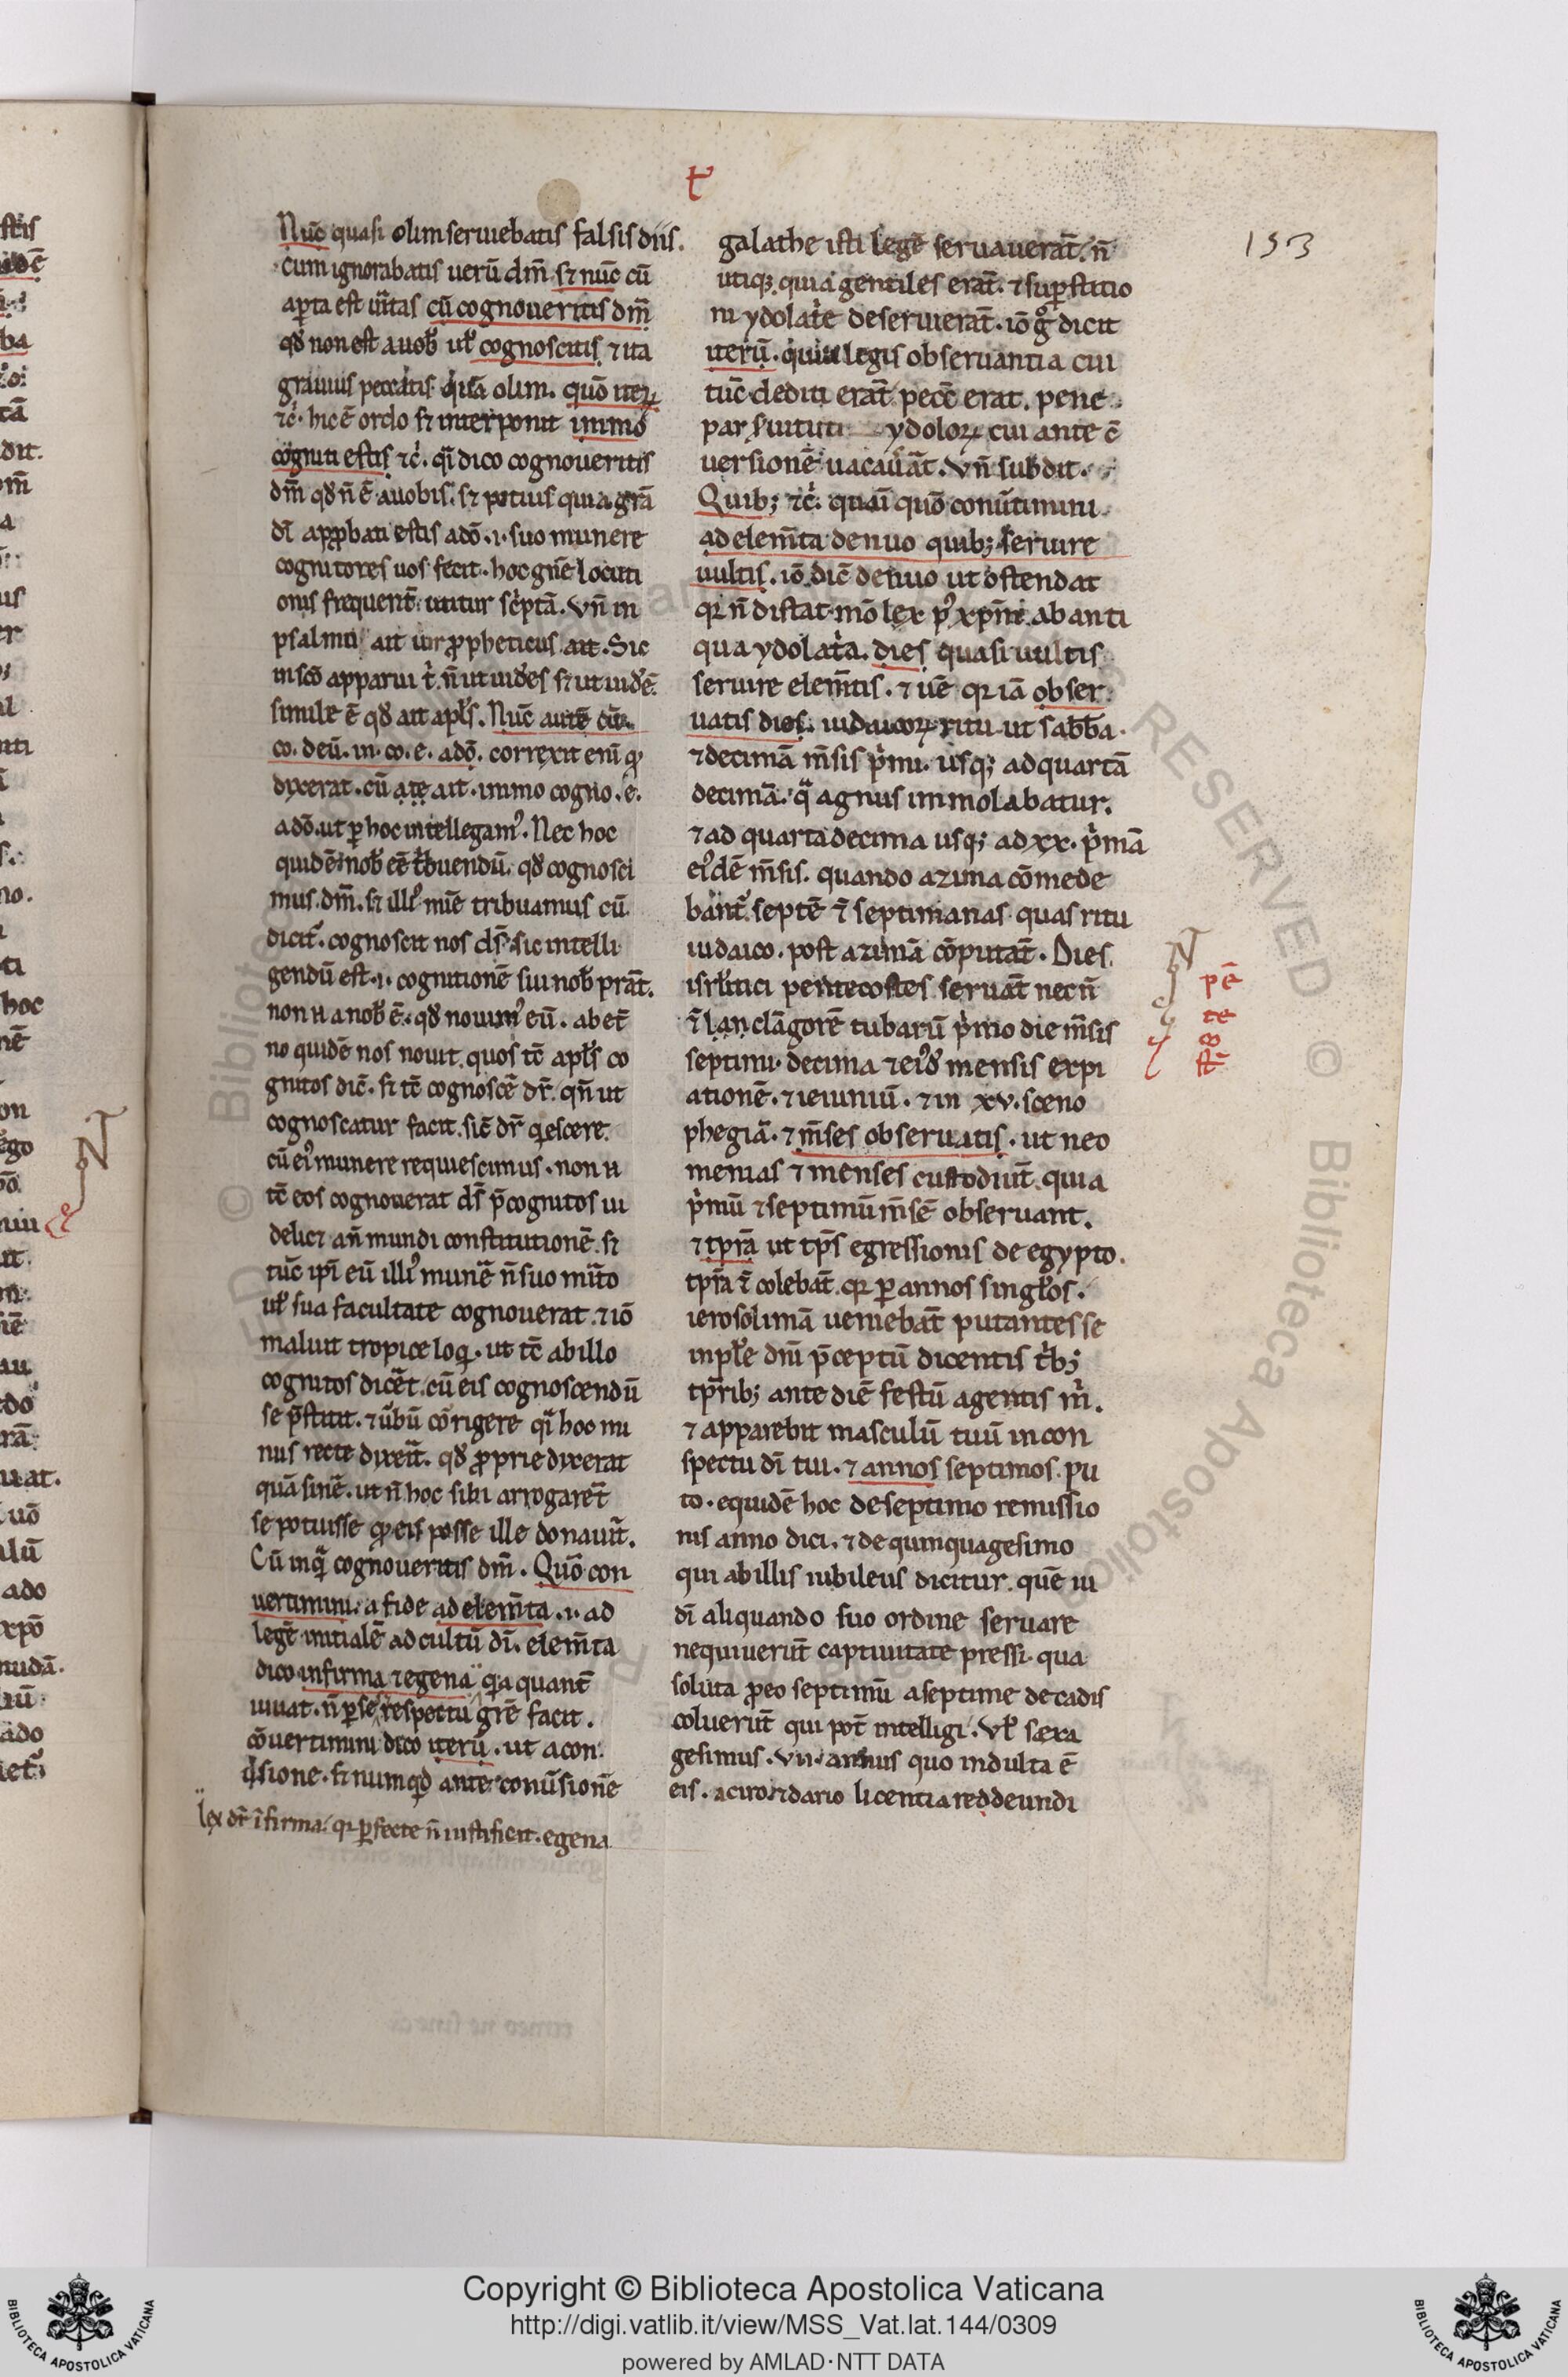 Nūc quasi olim seruiebatis falsis diis.
cum ignorabatis uerū dm̄ s; nūc cū
aꝑta est ūitas cū cognoueritis dm̄
qđ non est a uoƀ uł cognoscitis ⁊ ita
grauius peccatis quā olim. quō iteꝝ
⁊c̄. hic ē ordo s; interponit immo
cogniti estis ⁊c̄. q̄i dico cognoueritis
dm̄ qđ n̄ ē a uobis. s; potius quia gr̄a
dī approbati estis a dō .i. suo munere
cognitores uos fecit. hoc gn̄e locuti
onis frequent̄ utitur sc̄pta. Vn̄ in
psalmu ait uir ꝓpheticus ait. Sic
in sc̄o apparui t̄ n̄ ut uid̄es s; ut uid̄ē.
simile ē qđ ait apłs. Nūc autē cū.
co. deū. in. co. e. a dō. correxit enī ꝙ
dixerat. cū ate ait. immo cogno. e.
a dō. ut ꝑ hoc intellegamꝰ. Nec hoc
quidē noƀ eē t̄buendū. qđ cognosci
mus dm̄. s; illiꝰ mūe tribuamus cū
dicit᷑. cognoscit nos ds̄ sic intelli
gendū est .i. cognitionē sui noƀ p̄rat̄.
non ū a noƀ ē. qđ nouimꝰ eū. ab et̄
no quidē nos nouit. quos tc̄ apłs co
gnitos dic̄. s; tc̄ cognosce dr̄. qn̄ ut
cognoscatur facit. sic̄ dr̄ q̄escere.
cū eiꝰ munere requiescimus. non ū
tc̄ eos cognouerat ds̄ p̄cognitos ui
delic; an̄ mundi constitutionē. s;
tūc ipi eū illiꝰ munē n̄ suo mīto
uł sua facultate cognouerat. ⁊ iō
maluit tropice loq̄. ut tc̄ ab illo
cognitos dicēt. cū eis cognoscendū
se p̄stitit. ⁊ ūbū cōrigere q̄i hoc mi
nus recte dixeit̄. qđ ꝓprie dixerat
quā sinē. ut n̄ hoc sibi arrogaret̄
se potuisse ꝙ eis posse ille donauit̄.
Cū inq̄ cognoueritis dm̄. Quō con
uertimini. a fide ad elem̄ta .i. ad
legē initialē ad cultū dī. elem̄ta
dico infirma ⁊ egena q̄a quant̄
iuuat. n̄ ꝑ se respectu gr̄e facit.
cōuertimini dico iterū. ut a con
ūsione. s; numqđ ante conūsionē
lex dr̄ īfirma. q̄ ꝑfecte n̄ iustificat. egena
galathe isti legē seruauerat̄. n̄
utiq; quia gentiles erat̄. ⁊ suꝑstitio
ni ydolat̄e deseruierat̄. iō g̊ dicit
iterū. quia legis obseruantia cui
tūc dediti erāt pecc̄ erat. pene
par s̄uituti ydoloꝝ cui ante ē
uersionē uacauāt. Vn̄ subdit.
Quib; ⁊c̄. quāi quō conūtimini
ad elem̄ta denuo quib; seruire
uultis. iō dic̄ denuo ut ostendat
q̄ n̄ distat. mō lex pꝰ xp̄m ab anti
qua ydolat̄a. dies quasi uultis
seruire elem̄tis. ⁊ uē q̄ iā obser
uatis dies. iudaicoꝝ ritu ut sab̄ba.
⁊ decimā m̄sis p̄mi. usq; ad quartā
decimā. q̄ agnus immolabatur.
⁊ ad quarta decima usq; ad xx. p̄mā
eiꝰdē m̄sis. quando azima cōmede
bant᷑. septē ⁊ septimanas quas ritu
iudaico. post azimā cōputat̄. Dies
isrłitici pentecostes seruāt necn̄
⁊ lan clāgorē tubarū p̄mo die m̄sis
septimi. decima ⁊ eiꝰđ mensis expi
ationē. ⁊ ieiuniū. ⁊ in xv. sceno
phegiā. ⁊ m̄ses obseruatis. ut neo
menias ⁊ menses custodiūt. quia
p̄mū ⁊ septimū m̄sē obseruant.
⁊ tp̄ra ut tp̄s egressionis de egypto.
tp̄ra ⁊ colebāt. q̄ ꝑ annos singłos.
ierosolimā ueniebāt putantes se
inpłe dn̄i p̄ceptū dicentis t̄b;
tp̄rib; ante diē festū agentis m̄.
⁊ apparebit masculū tuū in con
spectu dī tui. ⁊ annos septimos. pu
to. equidē hoc de septimo remissio
nis anno dici. ⁊ de quinquagesimo
qui ab illis iubileus dicitur. quē iu
dī aliquando suo ordine seruare
nequiuerūt captiuitate pressi. qua
soluta ꝓ eo septimū a septime decadis
coluerūt qui pot̄ intelligi. Vł sexa
gesimus. vii. annus quo indulta ē
eis. a ciro ⁊ dario licentia reddeundi
153
N
pē
te
co
st̄
N